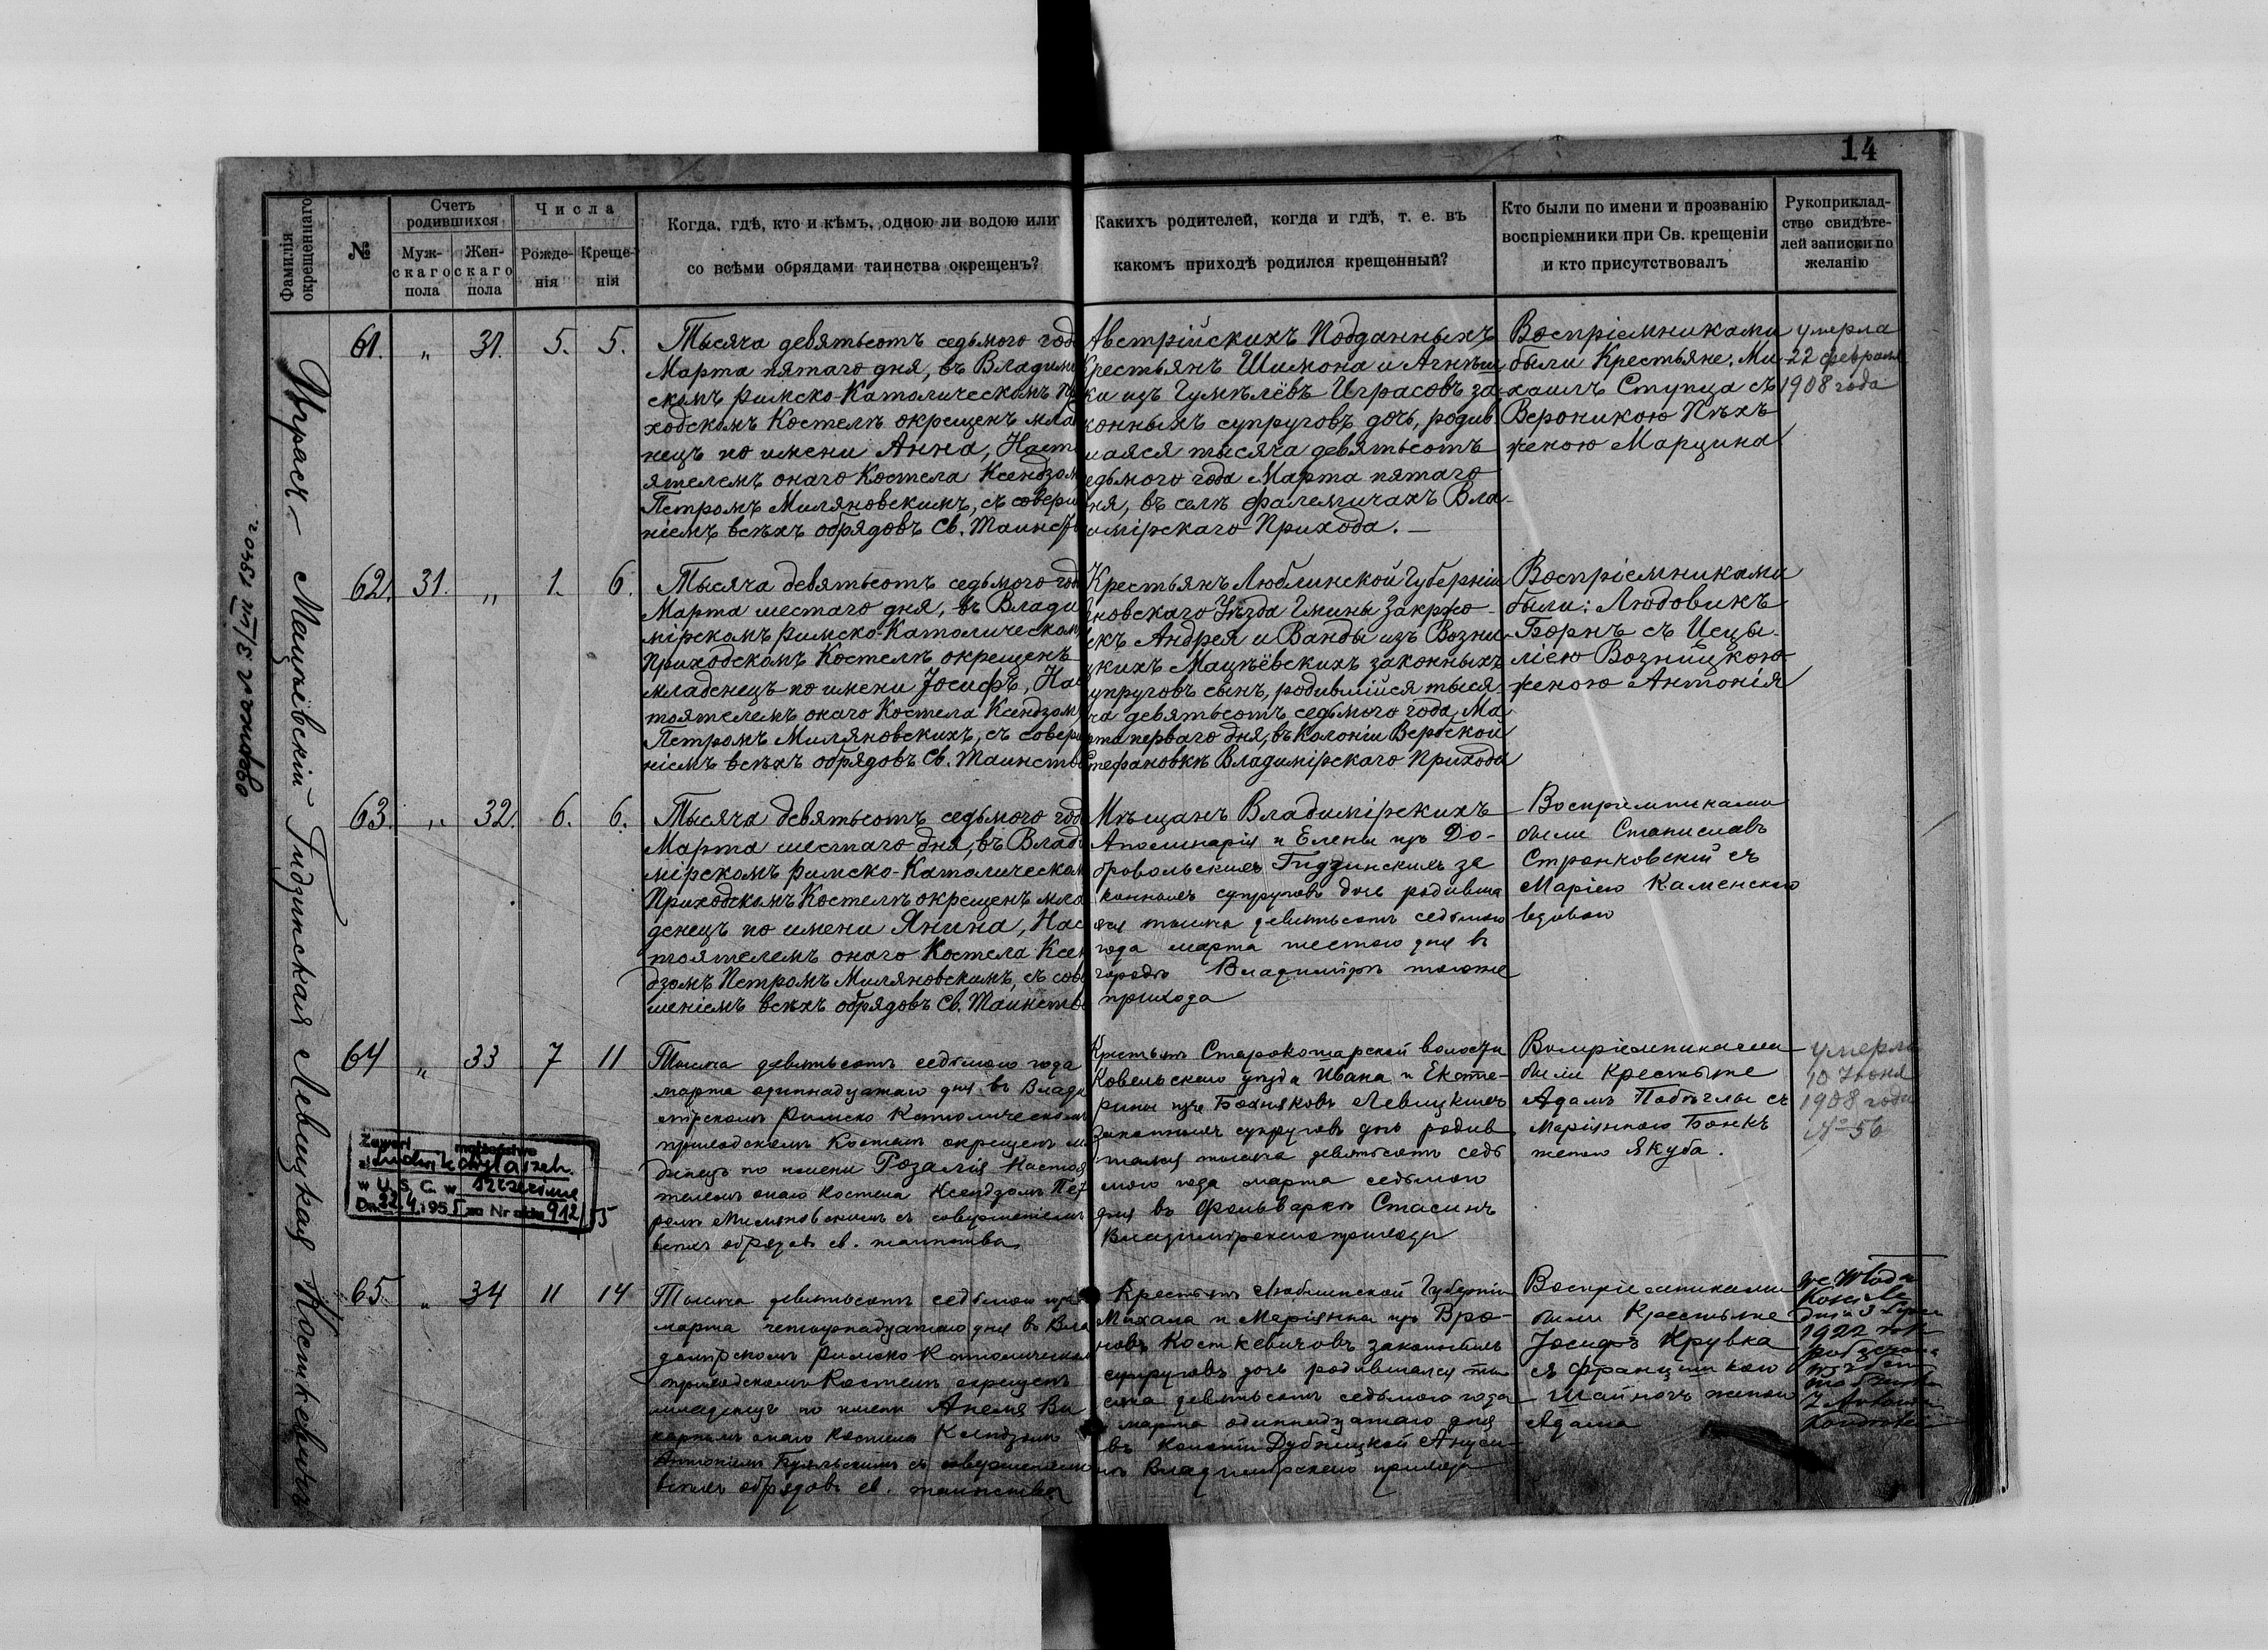 14
Фамилія
окрещеннаго
№
Счетъ
родившихся
Муж-
скаго
пола
Жен-
скаго
пола
Числа
Рожде-
нія
Креще-
нія
Когда, гдѣ, кто и кѣмъ, одною ли водою или
со всѣми обрядами таинства окрещенъ?
Какихъ родителей, когда и гдѣ, т. е. въ
какомъ приходѣ родился крещенный?
Кто были по имени и прозванію
воспріемники при Св. крещеніи
и кто присутствовалъ
Рукоприклад-
ство свидѣте-
лей записки по
желанію
Играсъ
61. " 31. 5. 5.
Тысяча девятьсотъ седьмого год
Марта пятаго дня, въ Владими
скомъ Римско-Католическомъ При
ходскомъ Костелѣ окрещенъ млад
нецъ по имени Анна, Наст
ятелемъ онаго Костела Ксендзом
Петромъ Миляновскимъ, съ соверш
ніемъ всѣхъ обрядовъ Св. Таинств
Австрійскихъ Подданныхъ
Крестьянъ Шимона и Агнѣш
ки изъ Гумѣлёвъ Играсовъ за
конныхъ супруговъ дочь, родив
шаяся тысяча девятьсотъ
едьмого года Марта пятаго
ня, въ селѣ Фалемичахъ Вла-
имірскаго Прихода.
Воспріемниками
были Крестьяне: Ми-
хаилъ Ступца съ
Вероникою Пѣхъ
женою Марцина
умерла
22 февраля
1908 года
Мацѣёвскій
62. 31. " 1. 6.
Тысяча девятьсотъ седьмого год
Марта шестаго дня, въ Влади
мірскомъ Римско-Католическом
Приходскомъ Костелѣ окрещенъ
младенецъ по имени Іосифъ, Нас
тоятелемъ онаго Костела Ксендзом
Петромъ Миляновскихъ, съ соверш
ніемъ всѣхъ обрядовъ Св. Таинств
Крестьянъ Люблинской Губерніи
новскаго Уѣзда Гмины Закржо-
къ Андрея и Ванды изъ Возни-
цкихъ Мацѣёвскихъ законныхъ
упруговъ сынъ, родившійся тыся-
ча девятьсотъ седьмого года Ма
рта перваго дня, въ Колоніи Вербской
Стефановкѣ Владимірскаго Прихода
Воспріемниками
были: Людовикъ
Борнъ съ Цецы-
ліею Возницкою
женою Антонія
Гидзинская
63. " 32. 6. 6.
Тысяча девятьсотъ седьмого год
Марта шестаго дня, въ Влад
мірскомъ Римско-Католическом
Приходскомъ Костелѣ окрещенъ мла
денецъ по имени Янина, Нас
тоятелемъ онаго Костела Ксен
дзомъ Петромъ Миляновскимъ, съ сове
шеніемъ всѣхъ обрядовъ Св. Таинств
Мѣщанъ Владимірскихъ
Аполинарія и Елены изъ До-
бровольскихъ Гидзинскихъ за
конныхъ супруговъ дочь родивша
яся тысяча девятьсотъ седьмого
года марта шестого дня въ
городѣ Владимірѣ тогоже
прихода
Воспріемниками
были Станиславъ
Стронковскій съ
Маріею Каменскою
вдовою
Левицкая
64 " 33 7 11
Тысяча девятьсотъ седьмого года
марта одиннадцатаго дня въ Влади
мірскомъ Римско Католическомъ
приходскомъ Костелѣ окрещенъ м
денецъ по имени Розалія Настоя
телемъ онаго Костела Ксендзомъ Пет
ромъ Миляновскимъ съ совершеніемъ
всѣхъ обрядовъ св. таинства
Крестьянъ Старокошарской волости
Ковельскаго уѣзда Ивана и Екате-
рины изъ Бохняковъ Левицкихъ
законныхъ супруговъ дочь родив
шаяся тысяча девятьсотъ седь
мого года марта седьмого
дня въ Фольваркѣ Стасинъ
Владимірскаго прихода
Воспріемниками
были крестьяне
Адамъ съ
Маріянною Бонкъ
женою Якуба.
умерла
10 Іюня
1908 года
№ 56
Zawarł małżeństwo
w U. S. C. w
Dn. 22.4. 195 za Nr aktu 912/55
Косткевичъ
65 " 34 11 14
Тысяча девятьсотъ седьмого года
марта четырнадцатаго дня въ Вла
димірскомъ Римско Католическом
приходскомъ Костелѣ окрещенъ
младенецъ по имени Анеля Ви
карнымъ онаго Костела Ксендзомъ
Антоніемъ съ совершеніемъ
всѣхъ обрядовъ св. таинства
Крестьянъ Люблинской Губерніи
Михала и Маріянны изъ Вро-
новъ Косткевичовъ законныхъ
супруговъ дочь родившаяся ты
сяча девятьсотъ седьмого года
марта одиннадцатаго дня
въ Колоніи Дубницкой
Владимірскаго прихода
Воспріемниками
были Крестьяне
Іосифъ Крувка
съ Францишкою
Шайногъ женою
Адама
1922